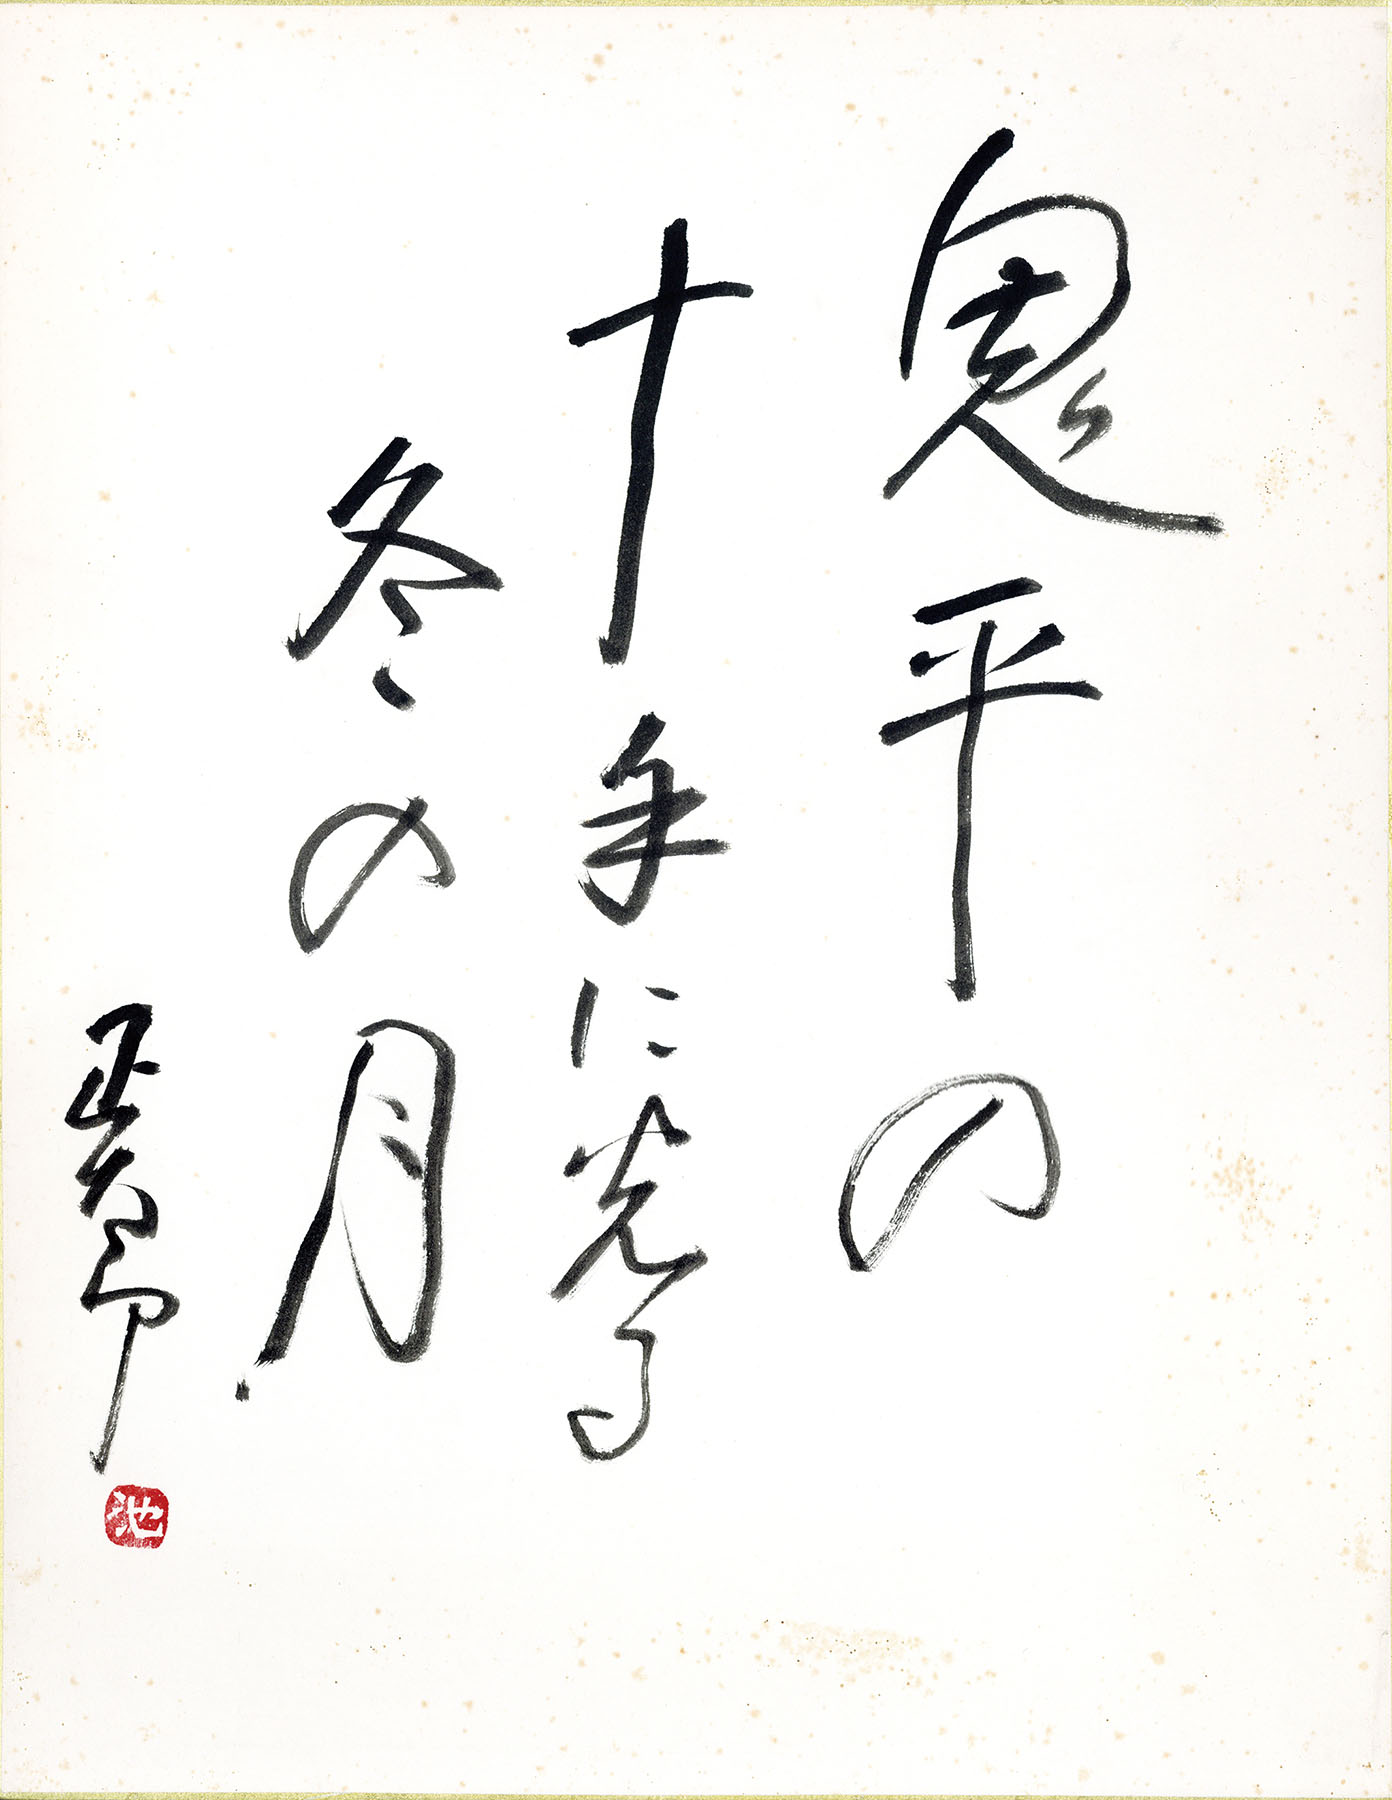 鬼平の
十手に光る
冬の月
正太郎
池